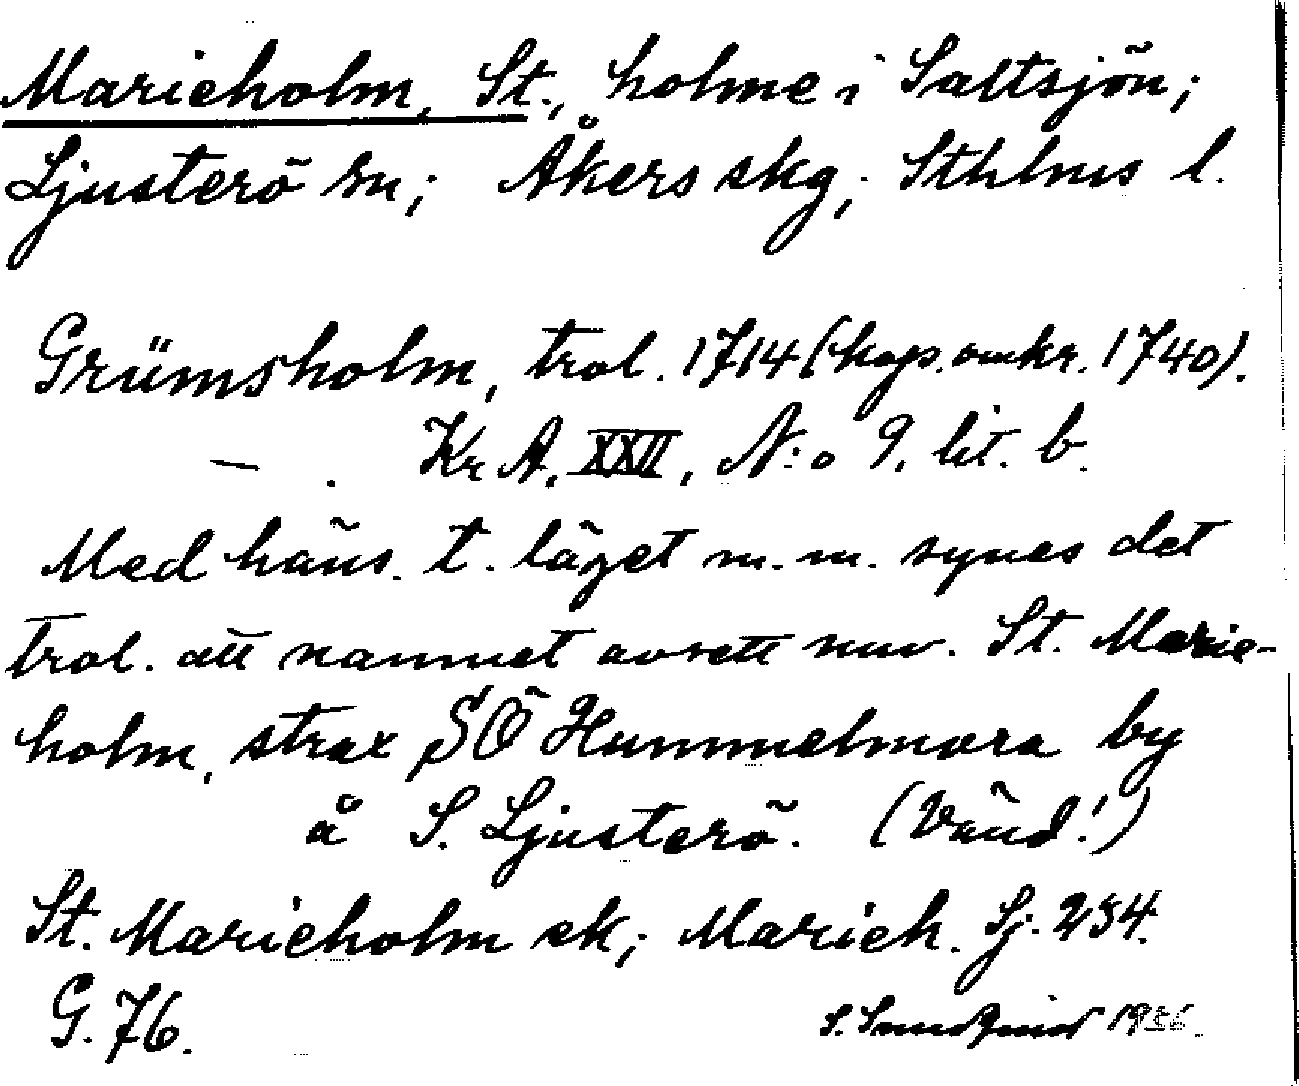 Marieholm, St., holme i Saltsjön;
Ljusterö sn; Åkers skg; Sthlms l.
Grümsholm, trol. 1714 (kop. omkr. 1740).
— . Kr A. XXII, N:o 9. lit. b.
Med häns. t. läget m. m. synes det
trol. att namnet avsett nuv. St. Marie-
holm, strax SÖ Hummelmora by
å S. Ljusterö. (Vänd!)
St. Marieholm ek; Marieh. Sj. 234.
G. 76.
S. 1936.